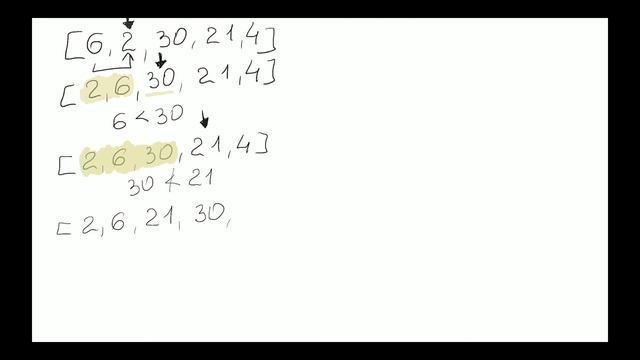 [6, 2, 30, 21, 4]
[2, 6, 30, 21, 4]
6 < 30
[2, 6, 30, 21, 4]
30 ≮ 21
[2, 6, 21, 30,